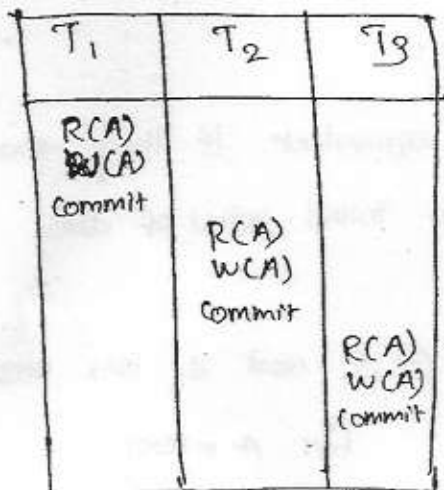 T1 T2 T3
R(A)
W(A)
Commit
R(A)
W(A)
Commit
R(A)
W(A)
Commit